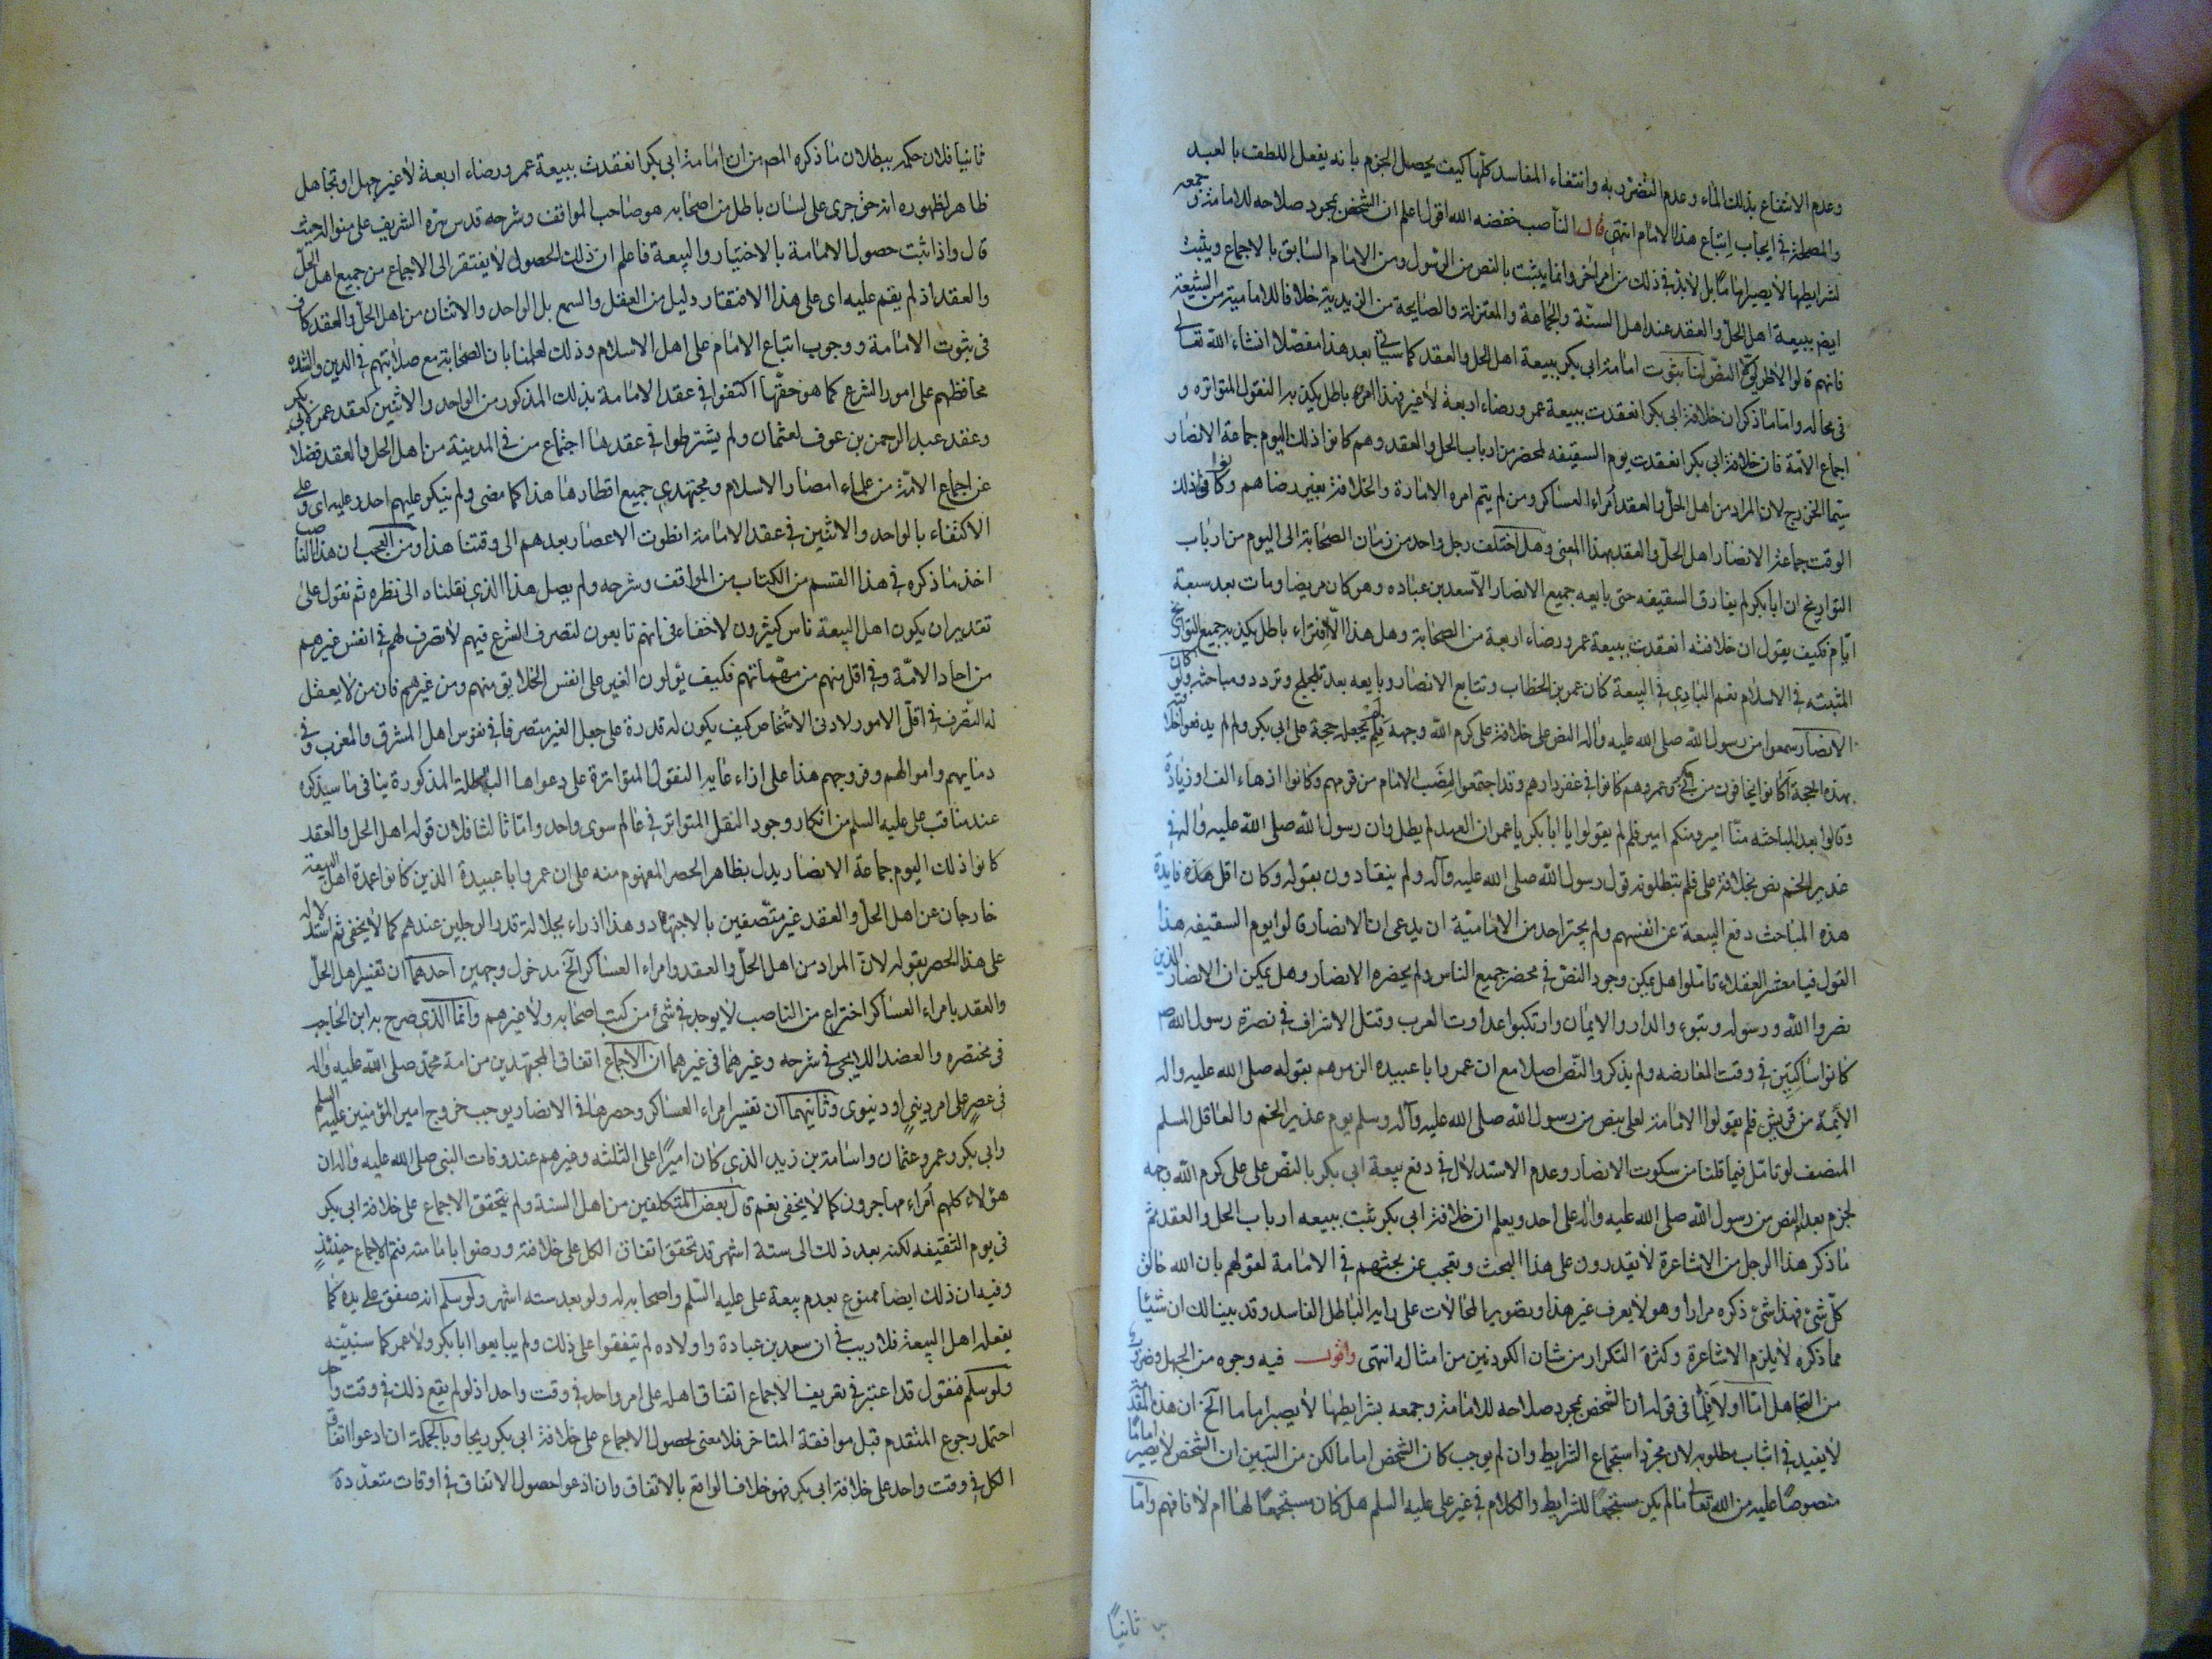 وعدم الانتفاع بذلك الماء وعدم التضرر به وانتفاء المفاسد كلها كيف يحصل الجزم بانه يفعل اللطف بالعبد
والمصلحة في ايجاب اتباع هذا الامام انتهى قال الناصب خفضه الله اقول اعلم ان الشخص بمجرد صلاحه للامامة وجمعه
لشرايطها لا يصير اماما بل لابد في ذلك من امر اخر وانما يثبت بالنص من الرسول ومن الامام السابق بالاجماع ويثبت
ايضا ببيعة اهل الحل والعقد عند اهل السنة والجماعة والمعتزلة والصالحية من الزيدية خلافا للامامية من الشيعة
فانهم قالوا لا طريق الا النص لنا ثبوت امامة ابي بكر ببيعة اهل الحل والعقد كما سياتي بعد هذا مفصلا انشاء الله تعالى
في محاله واما ما ذكر ان خلافة ابي بكر انعقدت ببيعة عمر ورضاء اربعة لا غير فهذا امر باطل يكذبه النقول المتواتره و
اجماع الامة فان خلافة ابي بكر انعقدت يوم السقيفه بمحضر من ارباب الحل والعقد وهم كانوا ذلك اليوم جماعة الانصار
سيما الخزرج لان المراد من اهل الحل والعقد امراء العساكر ومن لم يتم امره الامارة والخلافة بغير رضاهم وكانوا في ذلك
الوقت جماعة الانصار اهل الحل والعقد بهذا المعنى وهل اختلف رجل واحد من زمان الصحابة الى اليوم من ارباب
التواريخ ان ابابكر لم يفارق السقيفه حتى بايعه جميع الانصار الا سعد بن عباده وهو كان مريضا ومات بعد سبعة
ايام فكيف يقول ان خلافته انعقدت ببيعة عمر ورضاء اربعة من الصحابة وهل هذا الا افتراء باطل يكذبه جميع التواريخ
المثبته في الاسلام نعم البادي في البيعة كان عمر بن الخطاب وتتابع الانصار وبايعه بعد تلجلج وتردد ومباحثه ولو كان
الانصار سمعوا من رسول الله صلى الله عليه واله النص على خلافة علي كرم الله وجهه فلم لم يجعل حجة على ابي بكر ولم لم يدفعوا خلافته
بهذه الحجة اكانوا يخافون من ابي بكر وعمر وهم كانوا في عقر دارهم وقد اجتمعوا لنصب الامام من قومهم وكانوا ازهاء الف او زيادة
وقالوا بعد المباحثه منا امير ومنكم امير فلم لم يقولوا يا ابا بكر يا عمر ان العهد لم يطل وان رسول الله صلى الله عليه واله في
غدير الخم نص بخلافة علي فلم تبطلون قول رسول الله صلى الله عليه وآله ولم ينقادون بقوله وكان اقل هذه فايدة
هذه المباحث دفع البيعة عن انفسهم ولم يجترا احد من الامامية ان يدعى ان الانصار قالوا يوم السقيفه هذا
القول فيا معشر العقلاء تاملوا هل يمكن وجود النص في محضر جميع الناس ولم يحضره الانصار وهل يمكن ان الانصار الذين
نصروا الله ورسوله وتبوء والدار والايمان وارتكبوا عداوت العرب وقتل الاشراف في نصرة رسول الله ص
كانوا ساكتين في وقت المعارضه ولم يذكروا النص اصلا مع ان عمر وابا عبيده الزموهم بقوله صلى الله عليه واله
الايمة من قريش فلم لم يقولوا الامامة لعلي بنص من رسول الله صلى الله عليه وآله وسلم يوم غدير الخم والعاقل المسلم
المنصف لو تامل فيما قلنا من سكوت الانصار وعدم الاستدلال في دفع بيعة ابي بكر بالنص على علي كرم الله وجهه
لجزم بعدم النص من رسول الله صلى الله عليه واله على احد ويعلم ان خلافة ابي بكر ثبت ببيعه ارباب الحل والعقد ثم
ما ذكر هذا الرجل من الاشاعرة لا يقدرون على هذا البحث ويعجب عن بحثهم في الامامة لقولهم بان الله خالق
كل شئ فهذا شئ ذكره مرارا وهو لا يعرف غير هذا وتصوير المحالات على رايه الباطل الفاسد وقد بينا لك ان شيئا
مما ذكره لا يلزم الاشاعرة وكثرة التكرار من شان الكودنين من امثاله انتهى واقول فيه وجوه من الجهل وضروب
من التجاهل اما اولا فلما في قوله ان الشخص بمجرد صلاحه للامامة وجمعه بشرايطها لا يصير اماما الخ ان هذه المقدمة
لا يفيد في اثبات مطلوبه لان مجرد استجماع الشرايط وان لم يوجب كان الشخص اماما لكن من البين ان الشخص لا يصير اماما
منصوصا عليه من الله تعالى ما لم يكن مستجمعا للشرايط والكلام في غير علي عليه السلم هل كان مستجمعا لها ام لا فافهم واما
ثانيا
ثانيا فلان حكمه ببطلان ما ذكره المص من ان امامة ابي بكر انعقدت ببيعة عمر ورضاء اربعة لا غير جهل او تجاهل
ظاهر لظهوره انه حق جرى على لسان باطل من اصحابه هو صاحب المواقف وشرحه قدس سره الشريف على منواله حيث
قال واذا ثبت حصول الامامة بالاختيار والبيعة فاعلم ان ذلك الحصول لا يفتقر الى الاجماع من جميع اهل الحل
والعقد اذ لم يقم عليه اى على هذا الافتقار دليل من العقل والسمع بل الواحد والاثنان من اهل الحل والعقد كاف
في ثبوت الامامة ووجوب اتباع الامام على اهل الاسلام وذلك لعلمنا بان الصحابة مع صلابتهم في الدين والشدة
محافظتهم على امور الشرع كما هو حقها اكتفوا في عقد الامامة بذلك المذكور من الواحد والاثنين كعقد عمر لابي بكر
وعقد عبد الرحمن بن عوف لعثمان ولم يشترطوا في عقدها اجتماع من في المدينة من اهل الحل والعقد فضلا
عن اجماع الامة من علماء امصار الاسلام ومجتهدي جميع اقطارها هذا كما مضى ولم ينكر عليهم احد وعليه اى وعلى
الاكتفاء بالواحد والاثنين في عقد الامامة انطوت الاعصار بعدهم الى وقتنا هذا ومن العجب ان هذا الناصب
اخذ ما ذكره في هذا القسم من الكتاب من المواقف وشرحه ولم يصل هذا الذي نقلناه الى نظره ثم نقول على
تقدير ان يكون اهل البيعة ناس كثيرون لا خفاء في انهم تابعون لتصرف الشرع فيهم لا تصرف لهم في انفس غيرهم
من احاد الامة وفي اقل منهم من مهماتهم فكيف يولون الغير على انفس الخلايق منهم ومن غيرهم فان من لا يعقل
له التصرف في اقل الامور لادنى الاشخاص كيف يكون له قدرة على جعل الغير متصرفا في نفوس اهل المشرق والمغرب وفي
دمايهم واموالهم وفروجهم هذا على النقول المتواترة على دعواها الباطلة المذكورة ينافى ما سيذكره
عند مناقب علي عليه السلم من انكار وجود النقل المتواتر في عالم سوى واحد واما ثالثا فلان قوله اهل الحل والعقد
كانوا ذلك اليوم جماعة الانصار يدل بظاهر الحصر المفهوم منه على ان عمر وابا عبيدة الذين كانوا عمدة اهل البيعة
خارجان عن اهل الحل والعقد غير متصفين بالاجتهاد وهذا ازراء بجلالة قدر الرجلين عندهم كما لا يخفى ثم استدلاله
على هذا الحصر بقوله لان المراد من اهل الحل والعقد وامراء العساكر الخ مدخول وجهين احدهما ان تفسير اهل الحل
والعقد بامراء العساكر اختراع من الناصب لا يوجد في شئ من كتب اصحابه ولا غيرهم وانما الذي صرح به ابن الحاجب
في مختصره والعضد الايجي في شرحه وغيرهما في غيرهما ان الاجماع اتفاق المجتهدين من امة محمد صلى الله عليه واله
في عصر على امر ديني او دنيوى وثانيهما ان تفسير امراء العساكر وحصرها في الانصار يوجب خروج امير المؤمنين عليه السلم
وابي بكر وعمر وعثمان واسامة بن زيد الذي كان اميرا على الثلثه وغيرهم عند وفات النبى صلى الله عليه واله ان
هؤلاء كلهم امراء مهاجرون كما لا يخفى نعم قال بعض المتكلفين من اهل السنة ولم يتحقق الاجماع على خلافة ابي بكر
في يوم السقيفه لكنه بعد ذلك الى ستة اشهر قد تحقق اتفاق الكل على خلافته ورضوا بامامته فتم الاجماع حينئذ
وفيه ان ذلك ايضا ممنوع بعدم بيعة علي عليه السلم واصحابه له ولو بعد سته اشهر ولو سلم انه صفق على يده كما
يفعله اهل البيعة فلا ريب في ان سعد بن عبادة واولاده لم يتفقوا على ذلك ولم يبايعوا ابا بكر ولا عمر كما سنبينه
ولو سلم فنقول قد اعتبر في تعريف الاجماع اتفاق اهله على امر واحد في وقت واحد اذ لو لم يقع ذلك في وقت واحد
احتمل رجوع المتقدم قبل موافقة المتاخر فلا معنى لحصول الاجماع على خلافة ابي بكر وبالجملة ان ادعوا اتفاق
الكل في وقت واحد على خلافة ابي بكر فهو خلاف الواقع بالاتفاق وان ادعوا حصول الاتفاق في اوقات متعددة